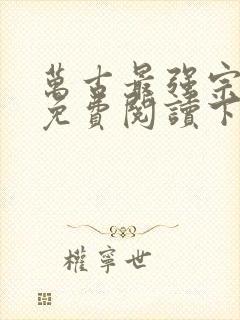 萬古最強宗
免費閱讀下
權寧世